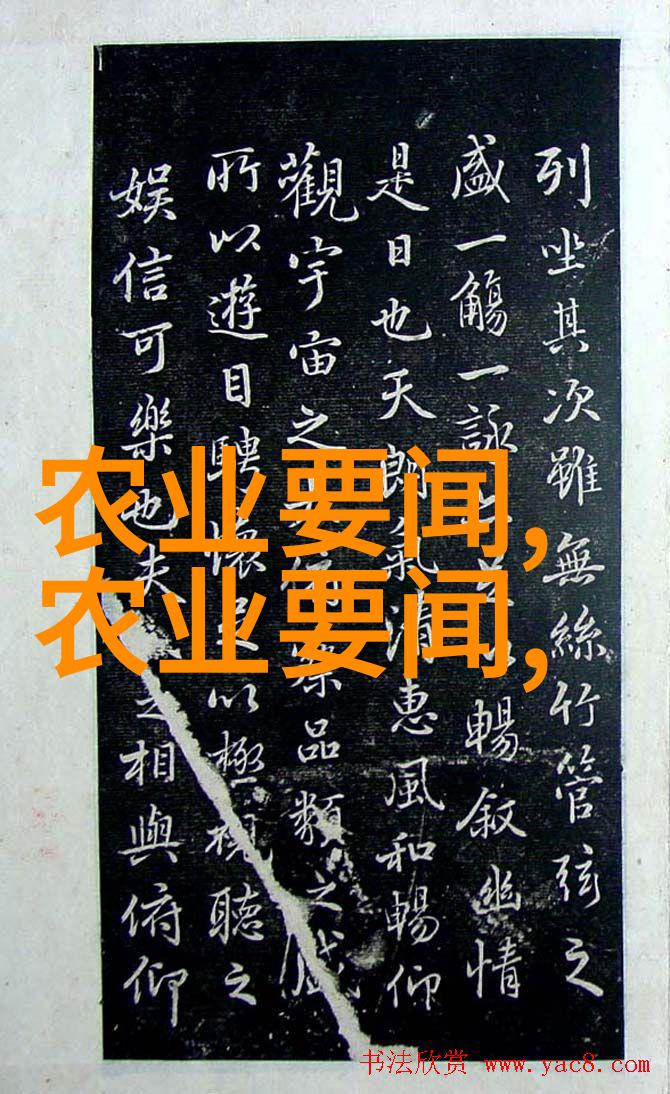 列坐其次雖無絲竹管弦之
盛一觴一詠暢叙幽情
是日也天朗氣清惠風和暢仰
觀宇宙之察品類之盛
所以遊目騁懷足以極視聽之
娛信可樂也夫之相與俯仰
农业要闻,
农业要闻,
书法欣赏 www.yac8.com